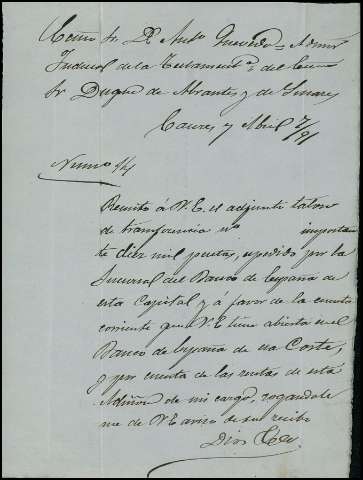 Excmo Sr. Dn Anto Quevedo = Admor
Judicial de la Testamentª del Excmo
Sr Duque de Abrantes y de Linares
Caceres y Abril 7/91
Numº
Remito á V.E. el adjunto talon
de transferencia nº importan
te diez mil pesetas, expedido por la
Sucursal del Banco de España de
esta Capital y á favor de la cuenta
corriente que V.E tiene abierta en el
Banco de España de esa Corte,
y por cuenta de las rentas de esta
Admon de mi cargo, rogandole
me de V.E aviso de su recibo
Dios